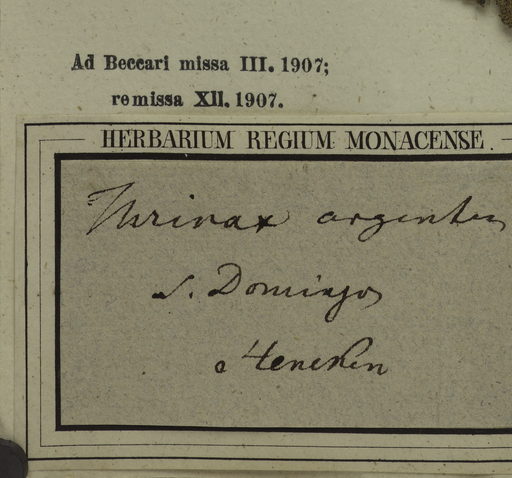 Ad Beccari missa III. 1907;
remissa XII. 1907.
HERBARIUM REGIUM MONACENSE.
Thrinax argentea
S. Domingo
Heneken